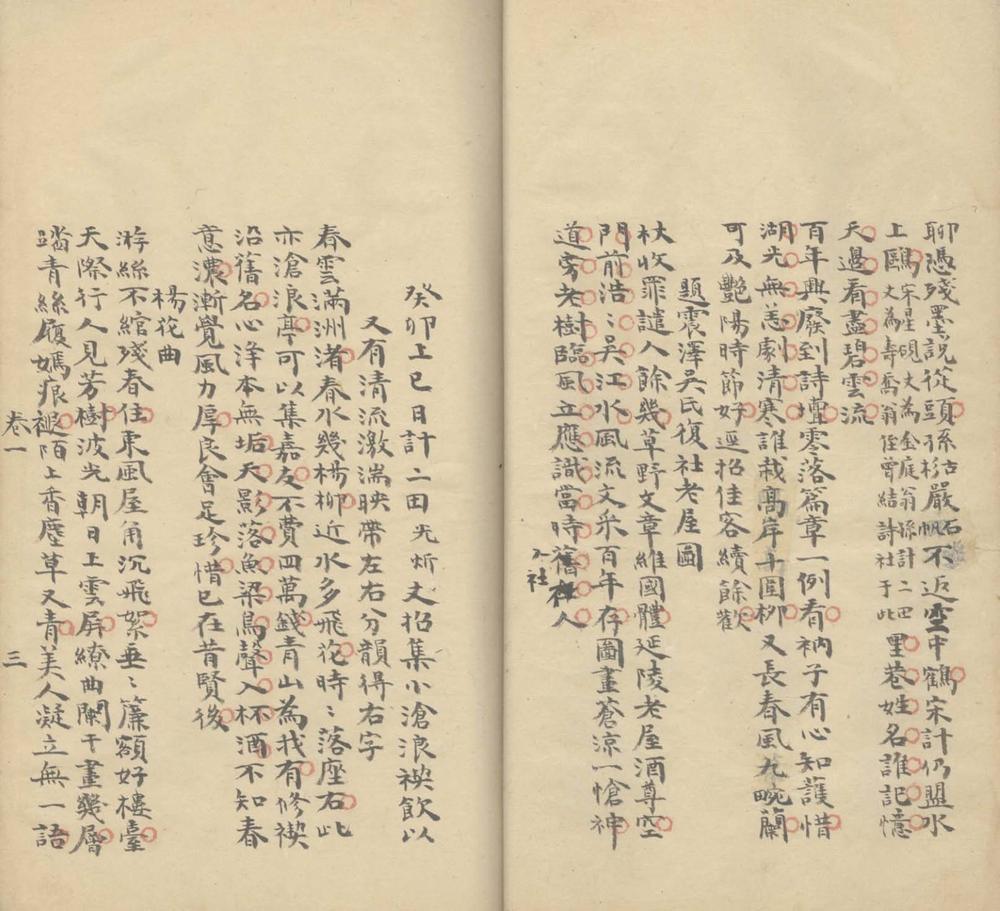 聊憑殘墨說從頭孫枯杉嚴石帆不返雲中鶴宋計仍盟水
上鷗宋星硯丈為金庭翁孫計二田丈為壽喬翁侄曾結詩社于此里巷姓名誰記憶
天邊看盡碧雲流
百年興廢到詩壇零落篇章一例看衲子有心知護惜
湖光無恙劇清寒誰栽高岸千圍柳又長春風九畹蘭
可及艷陽時節好還招佳客續餘歡
題震澤吳氏復社老屋圖
杕收罪譴人餘幾草野文章維國體延陵老屋酒尊空
門前浩〻吳江水風流文采百年存圖畫蒼涼一愴神
道旁老樹臨風立應識當時舊社人
癸卯上巳日計二田光炘丈招集小滄浪禊飲以
又有清流激湍映帶左右分韻得右字
春雲滿洲渚春水幾楊柳近水多飛花時〻落座右此
亦滄浪亭可以集嘉友不費四萬錢青山為我有修禊
沿舊名心泽本無垢天影落魚梁鳥聲入杯酒不知春
意濃漸覺風力厚良會足珍惜已在昔賢後
楊花曲
游絲不綰殘春住東風屋角沉飛絮垂〻簾額好樓臺
天際行人見芳樹波光朝日上雲屏繚曲闌干畫幾層
踏青絲履嫣痕褪陌上香塵草又青美人凝立無一語
卷一
三